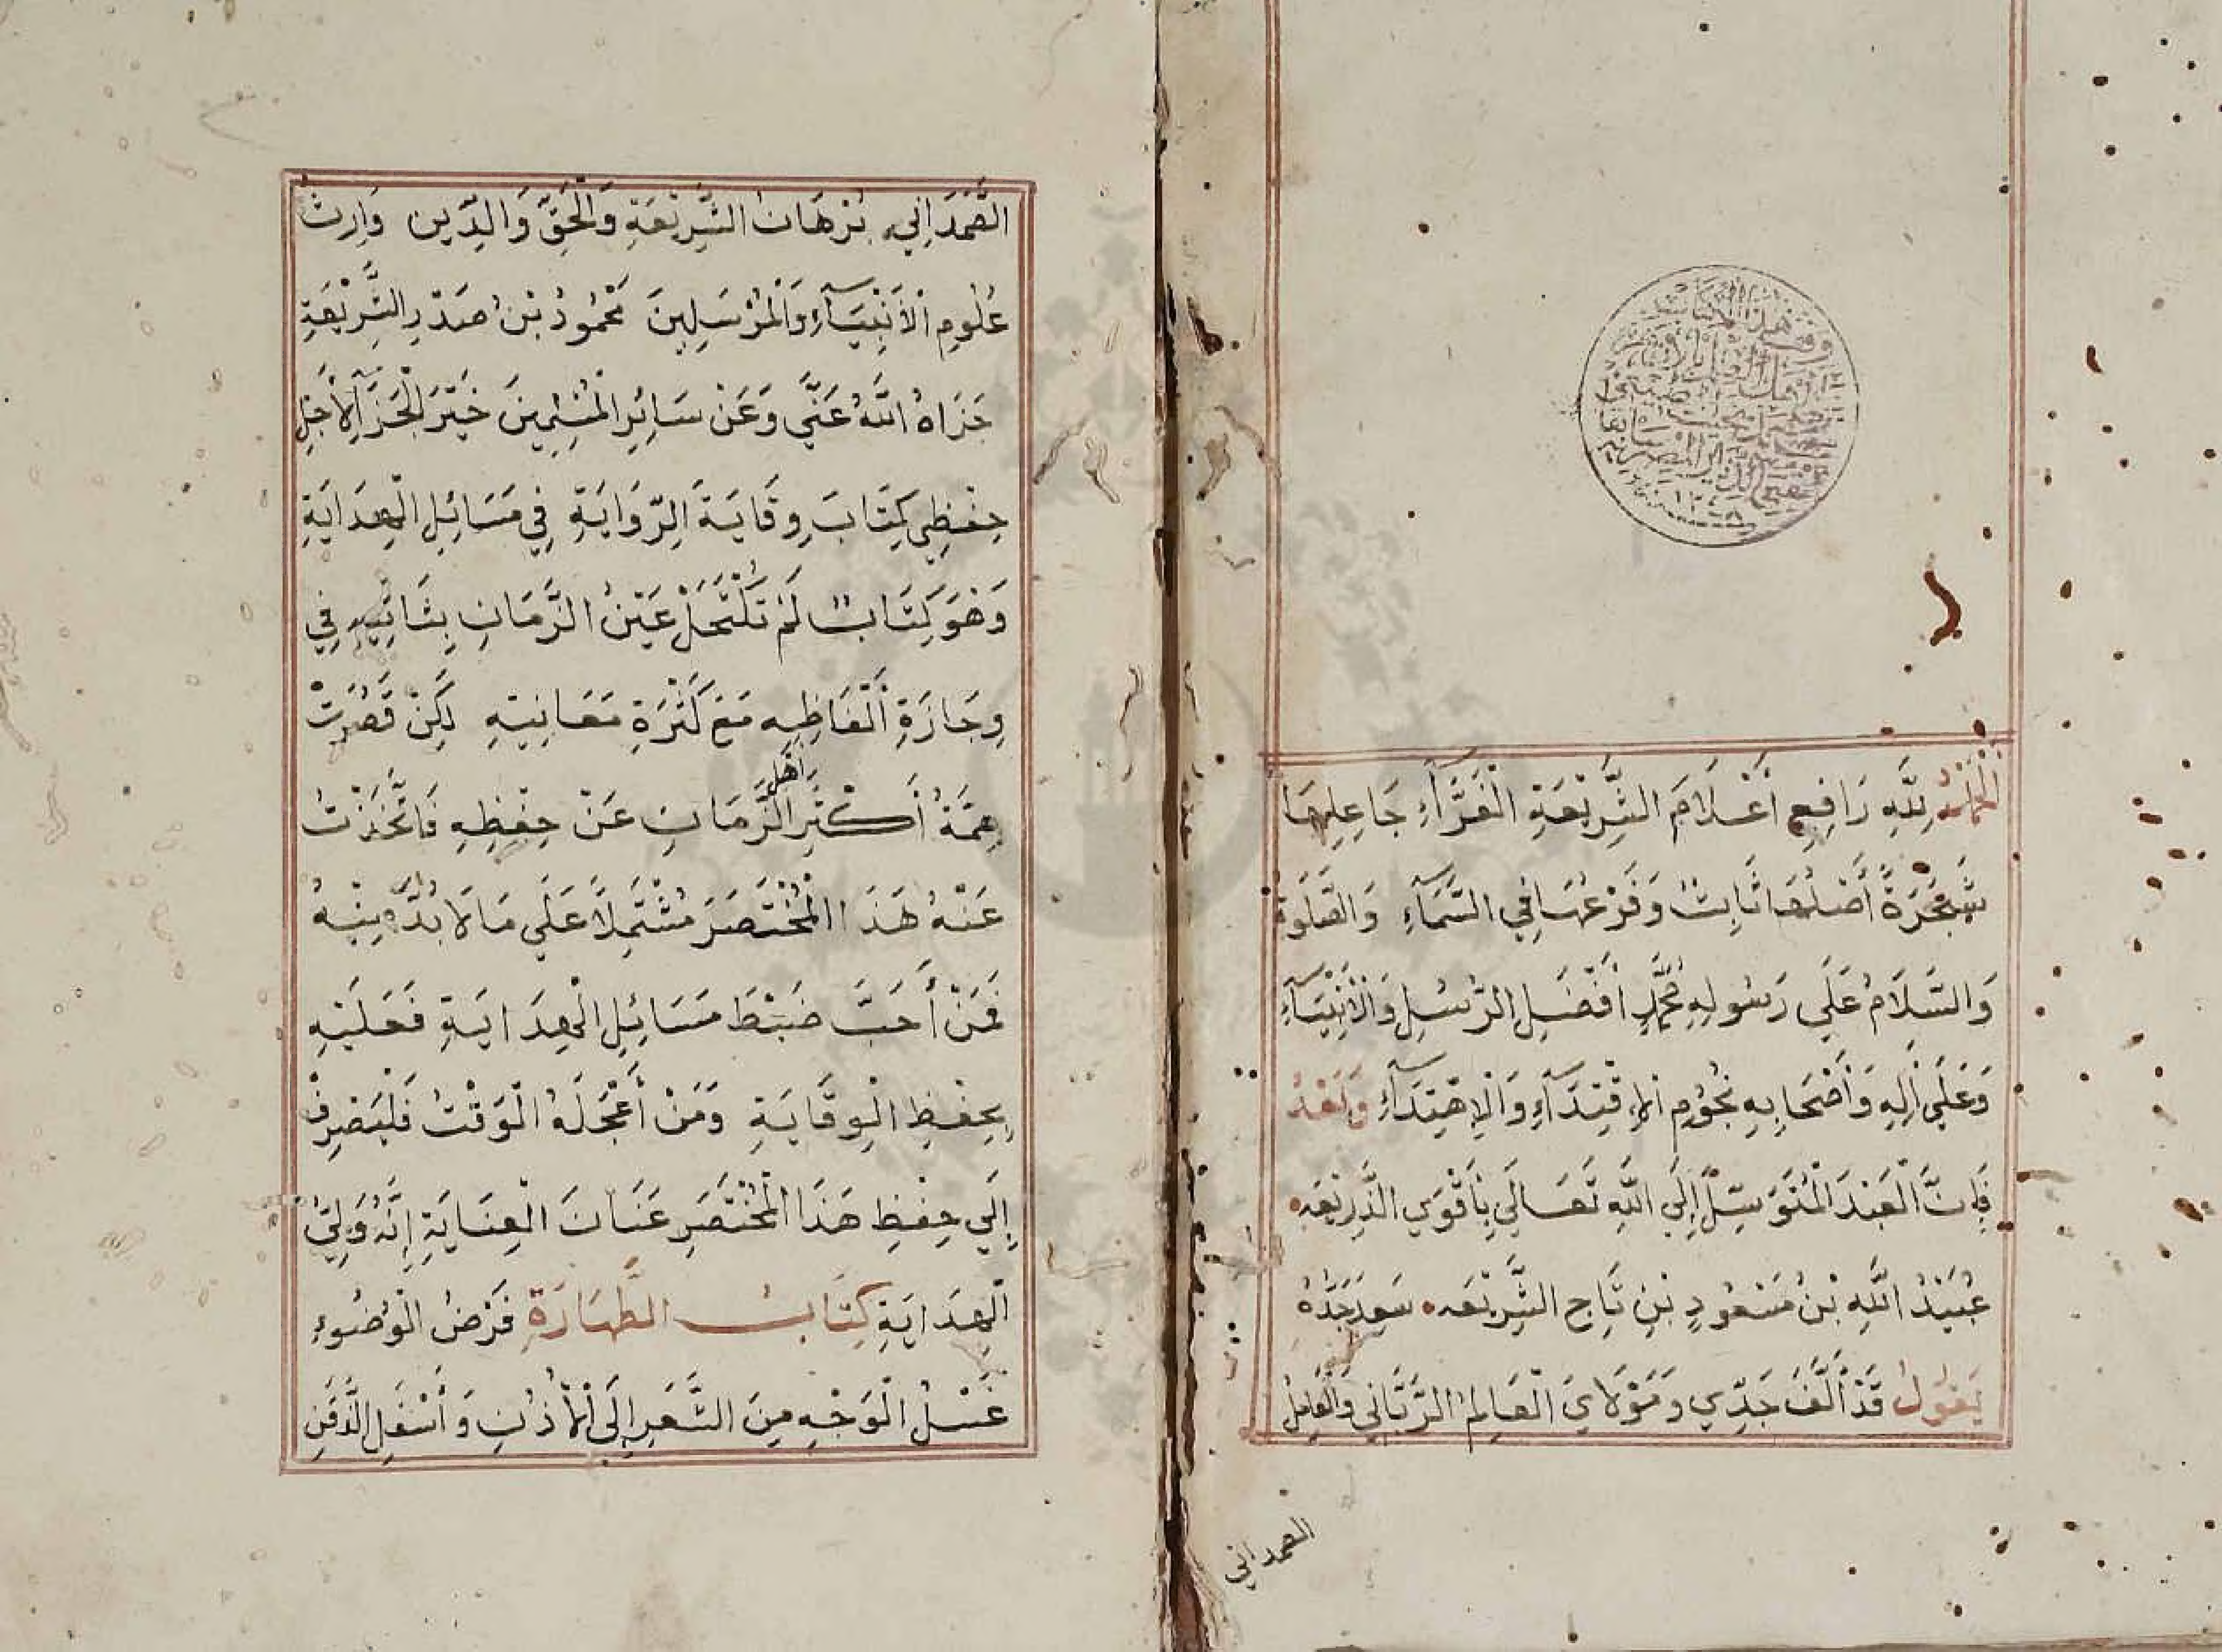 اَلْحَمْدُ لِلّٰهِ رَافِعِ أَعْلَامِ الشَّرِيْعَةِ الْغَرَّآءِ جَاعِلِهَا
شَجَرَةً أَصْلُهَا ثَابِتٌ وَفَرْعُهَا فِي السَّمَآءِ وَالصَّلٰوةُ
وَالسَّلَامُ عَلَي رَسُولِهِ مُحَمَّدٍ أَفْضَلِ الرُّسُلِ وَالْأَنْبِيَآءِ
وَعَلَي اٰلِهِ وَأَصْحَابِهِ نُجُوْمِ الْاِقْتِدَآءِ وَالْاِهْتِدَآءِ وَبَعْدُ
فَإِنَّ الْعَبْدَ الْمُتَوَسِّلَ إِلَي اللّٰهِ تَعَالَي بِأَقْوَي الذَّرِيْعَه
عُبَيْدُ اللّٰهِ بْنُ مَسْعُودٍ بْنِ تَاجِ الشَّرِيْعَه سَعِدَ جَدُّهُ
يَقُولُ قَدْ أَلَّفَ جَدِّي وَمَوْلَايَ الْعَالِمُ الرَّبَّانِي وَالْعَامِلُ
الصمداني
الصَّمَدَانِي بُرْهَانُ الشَّرِيْعَةِ وَالْحَقِّ وَالدِّينِ وَارِثُ
عُلُومِ الْأَنْبِيَآءِ وَالْمُرْسَلِينَ مَحْمُودُ بْنُ صَدْرِ الشَّرِيْعَةِ
جَزَاهُ اللّٰهُ عَنِّي وَعَنْ سَائِرِ الْمُسْلِمِينَ خَيْرَ الْجَزَآءِ لِأَجْلِ
حِفْظِي كِتَابَ وِقَايَةِ الرِّوَايَةِ فِي مَسَائِلِ الْهِدَايَةِ
وَهُوَ كِتَابٌ لَمْ تَكْتَحِلْ عَيْنُ الزَّمَانِ بِثَانِيْهِ فِي
وِجَازَةِ أَلْفَاظِهِ مَعَ كَثْرَةِ مَعَانِيْهِ لَكِنْ قَصُرَتْ
هِمَّةُ أَكْثَرِ أَهْلِ الزَّمَانِ عَنْ حِفْظِهِ فَاتَّخَذْتُ
عَنْهُ هَذَا الْمُخْتَصَرَ مُشْتَمِلًا عَلَي مَا لَا بُدَّ مِنْهُ
فَمَنْ أَحَبَّ ضَبْطَ مَسَائِلِ الْهِدَايَةِ فَعَلَيْهِ
بِحِفْظِ الْوِقَايَةِ وَمَنْ أَعْجَلَهُ الْوَقْتُ فَلْيَصْرِفْ
إِلَي حِفْظِ هَذَا الْمُخْتَصَرِ عَنَانَ الْعِنَايَةِ إِنَّهُ وَلِيُّ
الْهِدَايَةِ كِتَابُ الطَّهَارَةِ فَرْضُ الْوُضُوءِ
غَسْلُ الْوَجْهِ مِنَ الشَّعَرِ إِلَى الْأُذُنِ وَأَسْفَلِ الذَّقَنِ